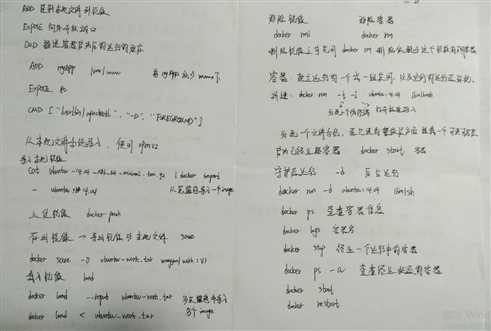 ADD 复制本地文件到镜像
EXPOSE 向外开放端口
CMD 描述容器启动后运行的程序
ADD myApp /var/www
EXPOSE 80
CMD ["/usr/sbin/apachectl", "-D", "FOREGROUND"]
从本地文件系统导入, 使用 openvz
导入本地镜像
cat ubuntu-14.04-x86_64-minimal.tar.gz | docker import
- ubuntu:14.04
上传镜像 docker push
存出镜像 → 导出镜像到本地文件 save
docker save -o ubuntu-work.tar
载入镜像 load
docker load --input ubuntu-work.tar
docker load < ubuntu-work.tar
移除镜像 移除容器
docker rmi docker rm
删除镜像之前先用 docker rm 删除依赖于这个镜像的所有容器
容器 独立运行的一个或一组应用, 以及它们的运行态环境
新建: docker run -t -i ubuntu:14.04 /bin/bash
启动已终止容器 docker start
守护态运行 -d 后台运行
docker run -d ubuntu:14.04 /bin/sh
docker ps 查看容器信息
docker logs 容器名
docker stop 终止一个运行中的容器
docker ps -a 查看终止状态的容器
docker start
docker restart